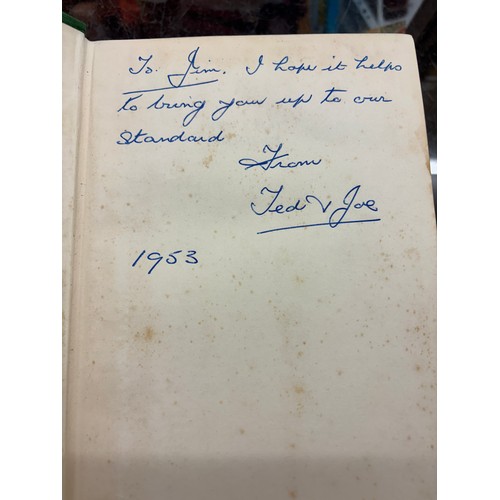 To Jim, I hope it helps
to bring you up to our
Standard
From
Ted & Joe
1953